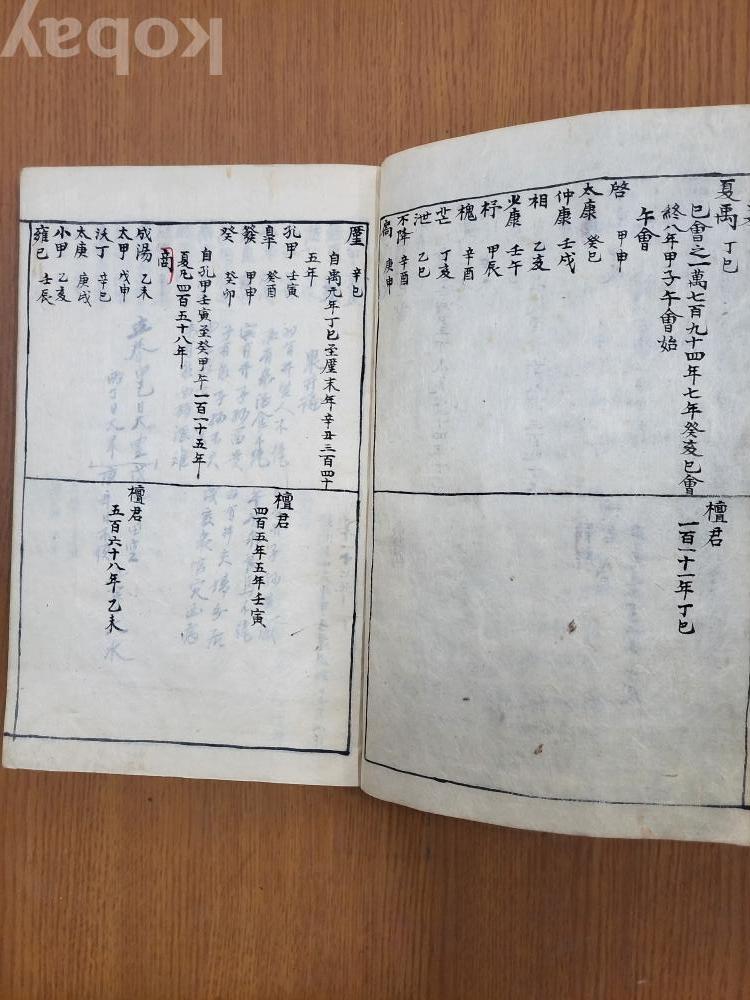 Kobay
夏禹 丁巳
巳會之一萬七百九十四年七年癸亥巳會
終八年甲子午會始
午會
啓 甲申
太康 癸巳
仲康 壬戌
相 乙亥
少康 壬午
杼 甲辰
槐 辛酉
芒 丁亥
泄 乙巳
不降 辛酉
扃 庚申
檀君
一百十一年丁巳
廑 辛巳
自禹元年丁巳至廑末年辛丑三百四十
五年
孔甲 壬寅
皐 癸酉
發 甲申
癸 癸卯
自孔甲壬寅至癸甲午一百十五年
夏凡四百五十八年
商
成湯 乙未
太甲 戊申
沃丁 辛巳
太庚 庚戌
小甲 乙亥
雍巳 壬辰
檀君
四百五年五年壬寅
檀君
五百六十八年乙未